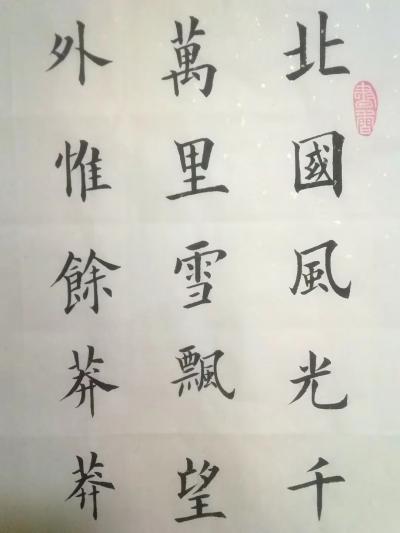 北國風光千
萬里雪飄望
外惟餘莽莽